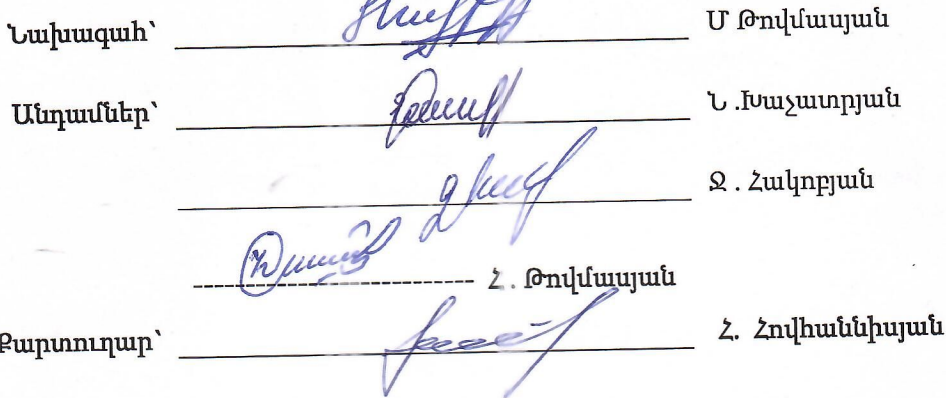 Նախագահ՝ Մ Թովմասյան
Անդամներ՝ Ն .Խաչատրյան
Ջ . Հակոբյան
Հ . Թովմասյան
Քարտուղար՝ Հ. Հովհաննիսյան